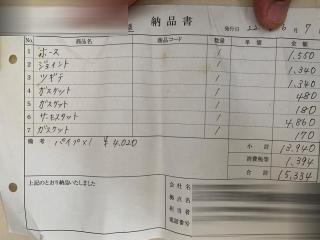 納品書
発行日 22 6 7
No. 商品名 商品コード 数量 単価 金額
1 ホース 1 1,550
2 ジョイント 1 1,340
3 ツギテ 1 1,340
4 ガスケット 1 480
5 ガスケット 1 180
6 サーモスタット 1 4,860
7 ガスケット 1 170
備考 パイプ×1 ¥4,020
小計 13,940
消費税等 1,394
合計 15,334
上記のとおり納品いたしました
会社名
拠点名
担当者
電話番号